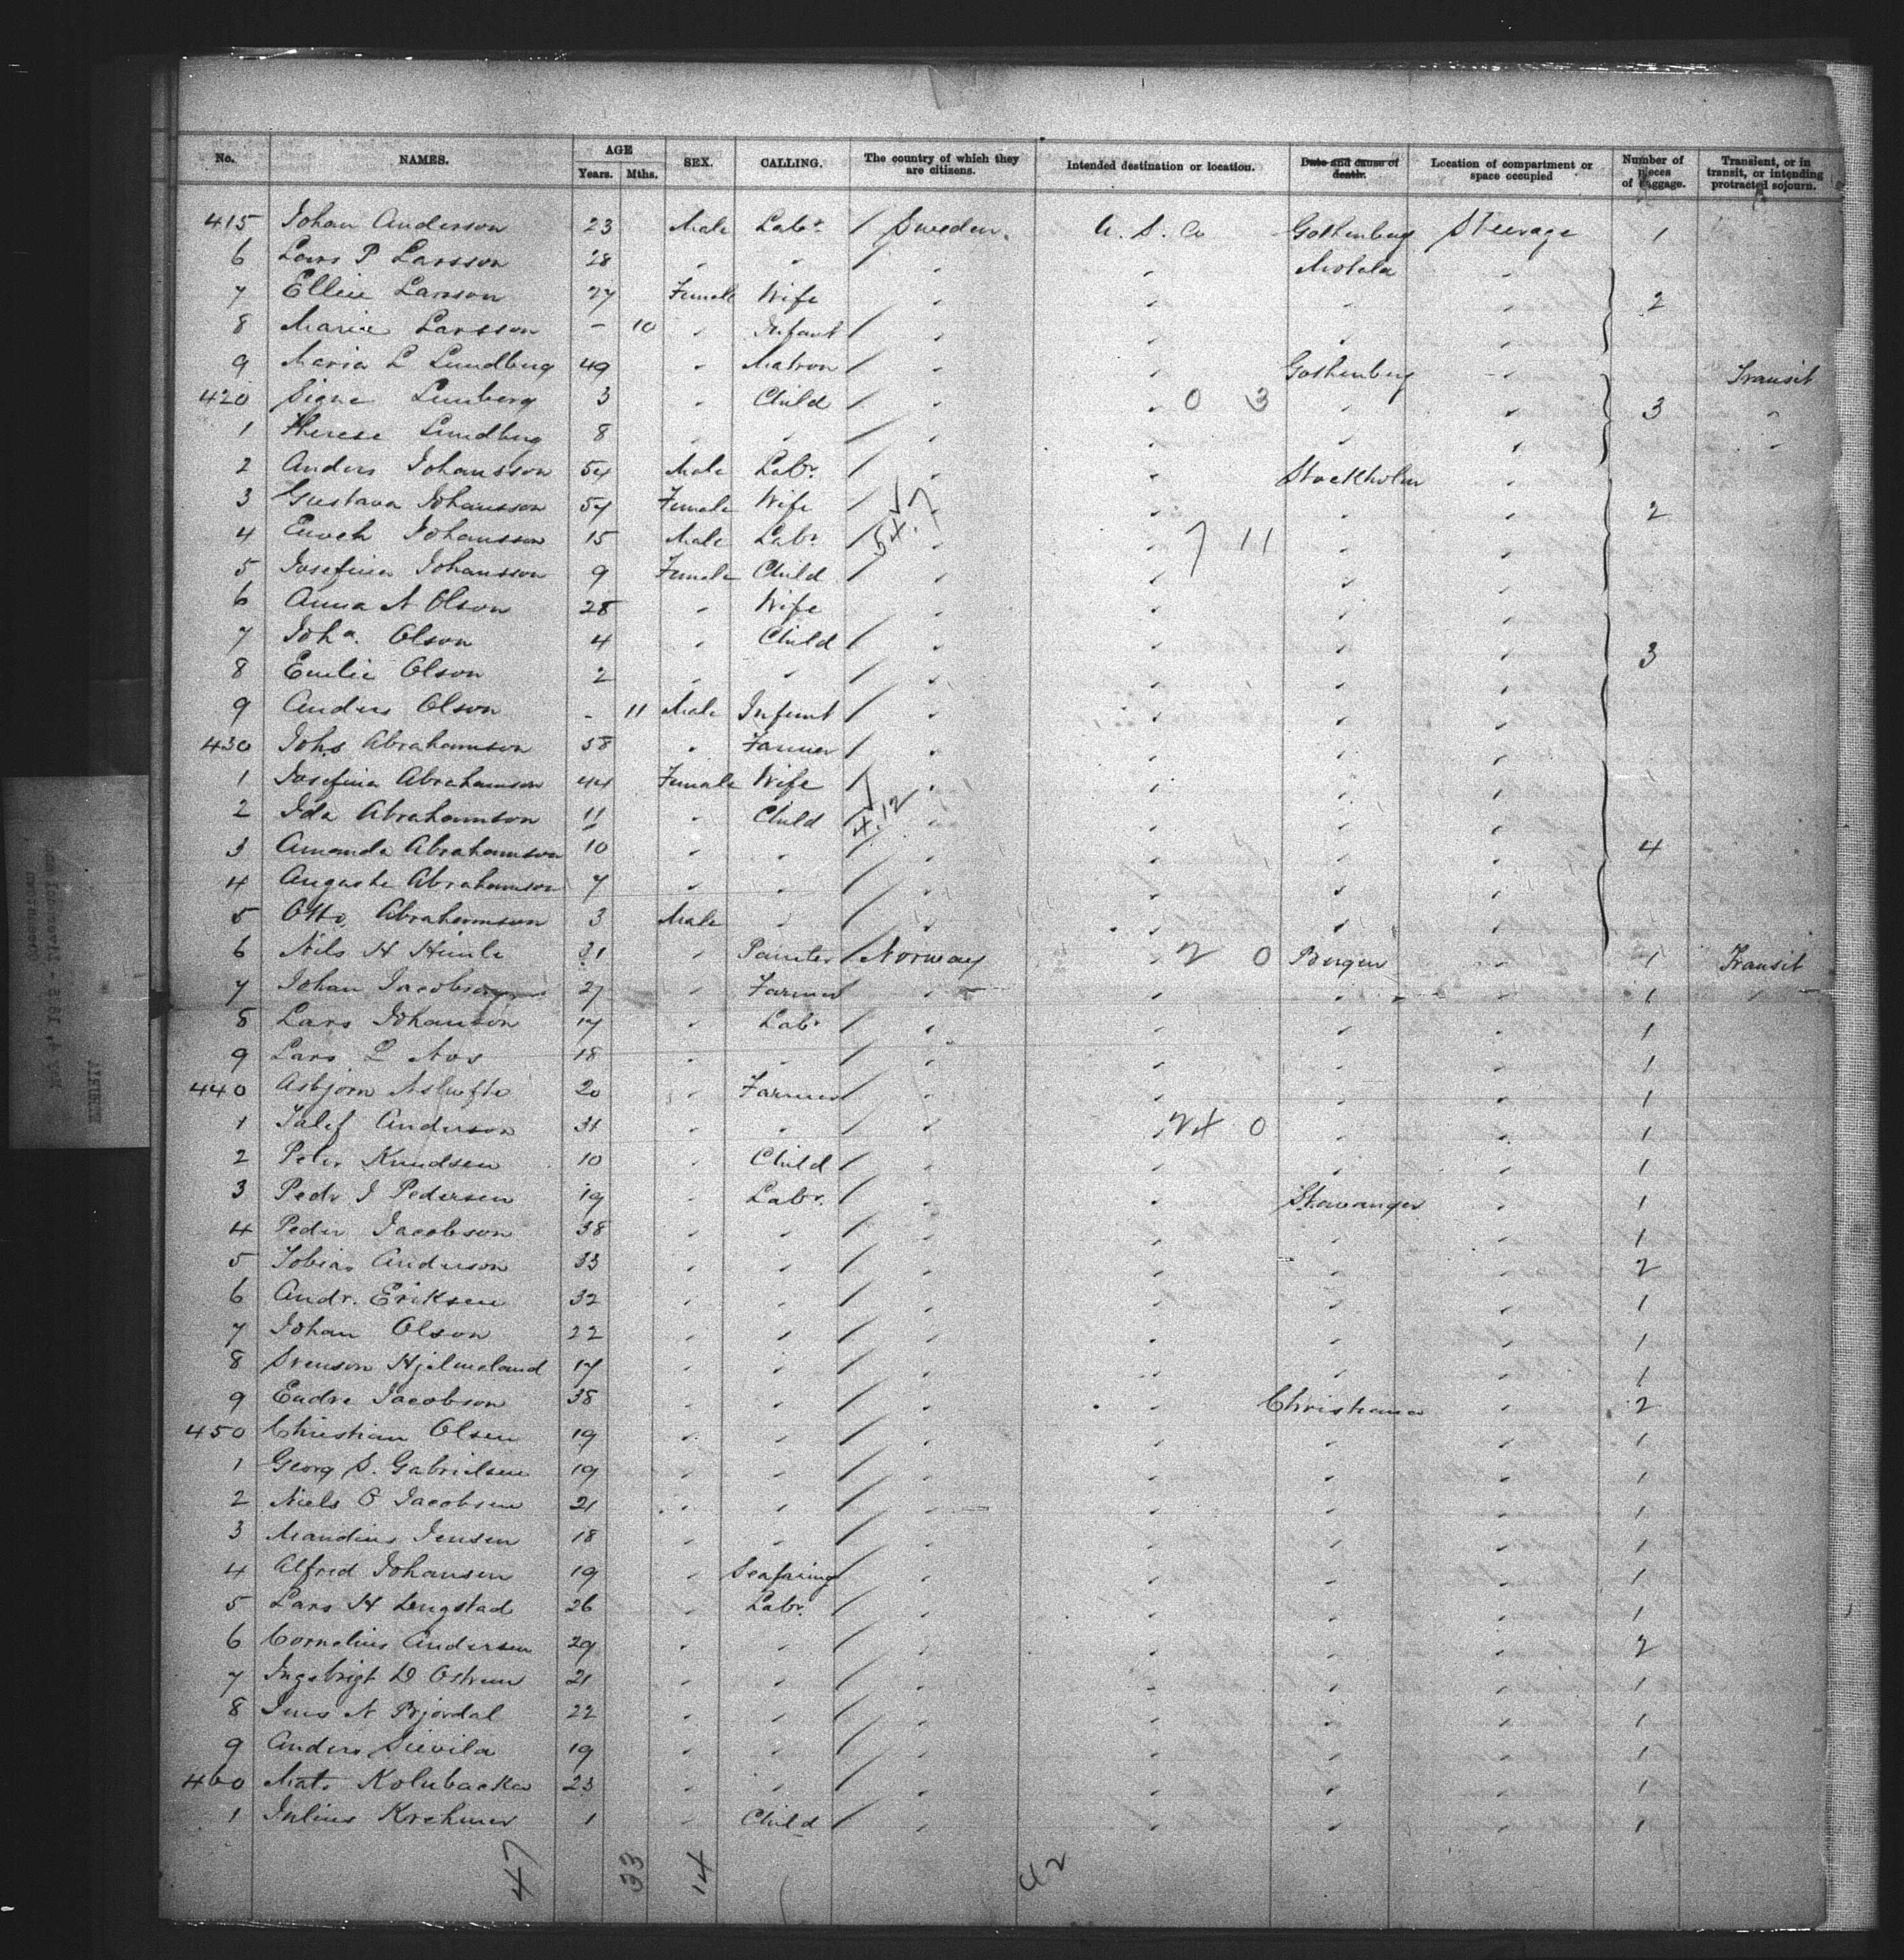 No. NAMES. AGE Years. Mths. SEX. CALLING. The country of which they are citizens. Intended destination or location. Date and cause of death. Location of compartment or space occupied Number of pieces of baggage. Transient, or in transit, or intending protracted sojourn.
415 Johan Anderson 23 Male Labr / Sweden. U. S. A Gothenburg Steerage 1
6 Lars P Larsson 28 " " / " " Motala "
7 Ellen Larsson 27 Female Wife / " " " " 2
8 Maria Larsson – 10 " Infant / " " " "
9 Maria L Lundberg 49 " Matron / " " Gothenburg " Transit
420 Signe Lunberg 3 " Child / " " 0 3 " " 3 "
1 Therese Lundberg 8 " " / " " " " "
2 Anders Johansson 54 Male Labr. / " " Stockholm "
3 Gustava Johansson 54 Female Wife / " " " " 2
4 Enoch Johansson 15 Male Labr. / 54.7 " " 7 11 " "
5 Josefina Johansson 9 Female Child / " " " "
6 Anna N Olson 28 " Wife " " " "
7 Joha. Olson 4 " Child / " " " " 3
8 Emilie Olson 2 " " / " " " "
9 Anders Olson - 11 Male Infant / " " " "
430 Johs Abrahamson 38 " Farmer / " " " "
1 Josefina Abrahamson 44 Female Wife / " " " "
2 Ida Abrahamson 11 " Child / 4.12 " " " "
3 Amanda Abrahamson 10 " " / " " " " 4
4 Augusta Abrahamson 7 " " / " " " "
5 Otto Abrahamson 3 Male " / " " " "
6 Nils H 31 " Painter / Norway " 2 0 Bergen " 1 Transit
7 Johan Jacobson 27 " Farmer / " " " " 1
8 Lars Johanson 17 " Labr / " " " " 1
9 Lars L 18 " " / " " " " 1
440 Asbjorn 20 " Farmer / " " " " 1
1 Anderson 31 " " / " " 24 0 " " 1
2 Peter Knudsen 10 " Child / " " " " 1
3 Pedr J Pedersen 19 " Labr. / " " Stavanger " 1
4 Peder Jacobson 38 " " / " " " " 1
5 Tobias Anderson 33 " " / " " " " 2
6 Andr. Eriksen 32 " " / " " " " 1
7 Johan Olson 22 " " / " " " " 1
8 Svenson Hjelmeland 17 " " / " " " " 1
9 Endre Jacobson 38 " " / " " Christiania " 2
450 Christian Olsen 19 " " / " " " " 1
1 Georg S. Gabrielsen 19 " " / " " " " 1
2 Niels O Jacobsen 21 " " / " " " " 1
3 Jensen 18 " " / " " " " 1
4 Alfred Johansen 19 " Seafaring / " " " " 1
5 Lars H 26 " Labr. / " " " " 1
6 Cornelius Andersen 29 " " / " " " " 2
7 Ingebrigt D 21 " " / " " " " 1
8 Jens N Bjordal 22 " " / " " " " 1
9 Anders 19 " " / " " " " 1
460 Mats 23 " " / " " " " 1
1 Julius 1 " Child / " " " " 1
47 33 14 42